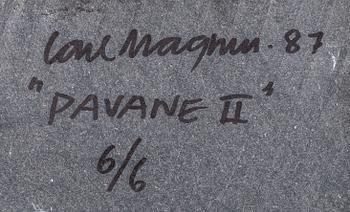 Carl Magnus. 87
"PAVANE II"
6/6